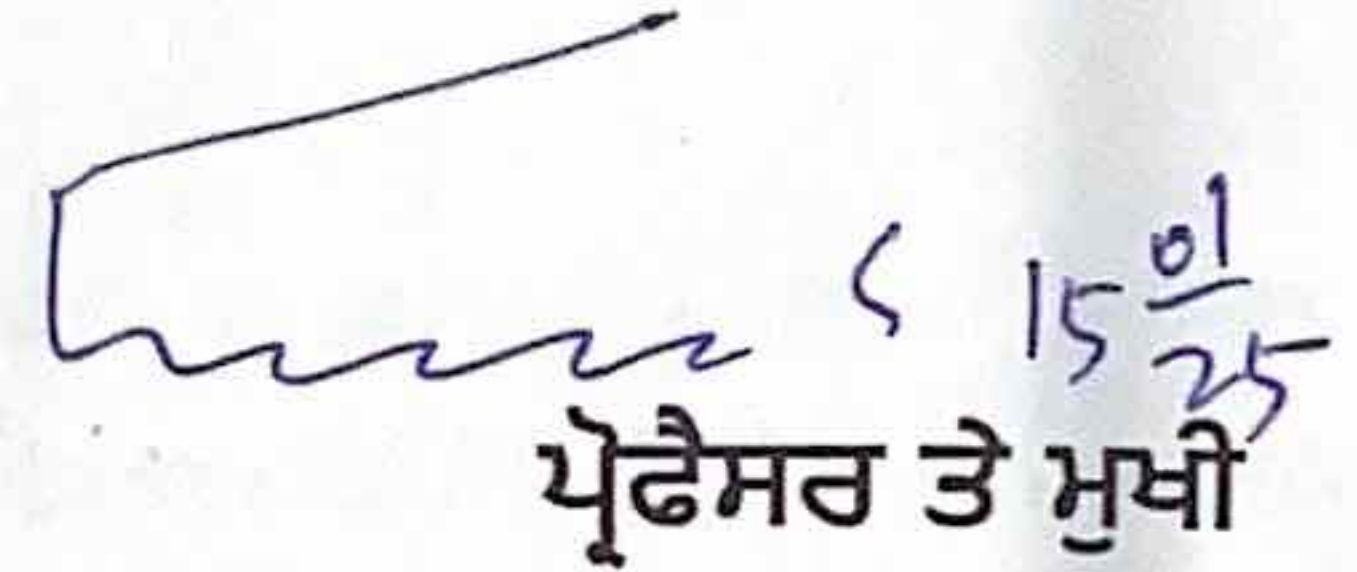 15 01/25
ਪ੍ਰੋਫੈਸਰ ਤੇ ਮੁਖੀ